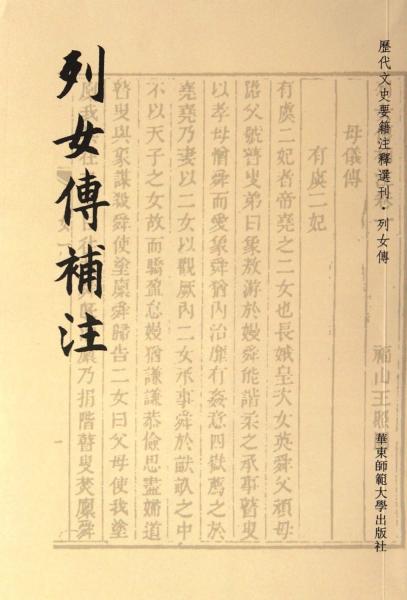 歷代文史要籍注釋選刊·列女傳
華東師範大學出版社
列女傳補注
福山王照
母儀傳
有虞二妃
有虞二妃者帝堯之二女也長娥皇次女英舜父頑母
嚚父號瞽叟弟曰象敖游於嫚舜能諧柔之承事瞽叟
以孝母憎舜而愛象舜猶內治靡有姦意四嶽薦之於
堯堯乃妻以二女以觀厥內二女承事舜於畎畝之中
不以天子之女故而驕盈怠嫚猶謙謙恭儉思盡婦道
瞽叟與象謀殺舜使塗廩舜歸告二女曰父母使我塗
廩乃捐階瞽叟焚廩舜